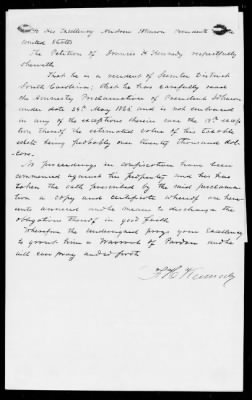 To His Excellency Andrew Johnson President of the
United States
The Petition of Francis H Kennedy respectfully
sheweth
That he is a resident of Sumter District
South Carolina; that he has carefully read
the Amnesty Proclamation of President Johnson
under date 29th May 1865 and is not embraced
in any of the exceptions therein save the 13th excep
tion thereof the estimated value of his taxable
estate being probably over twenty thousand dol-
lars.
No proceedings in confiscation have been
commenced against his property and he has
taken the oath prescribed by the said proclama
tion a copy and certificate whereof are here
unto annexed and he means to discharge the
obligations thereof in good faith
Wherefore the undersigned prays your Excellency
to grant him a Warrant of Pardon and he
will ever pray and so forth
F H Kennedy